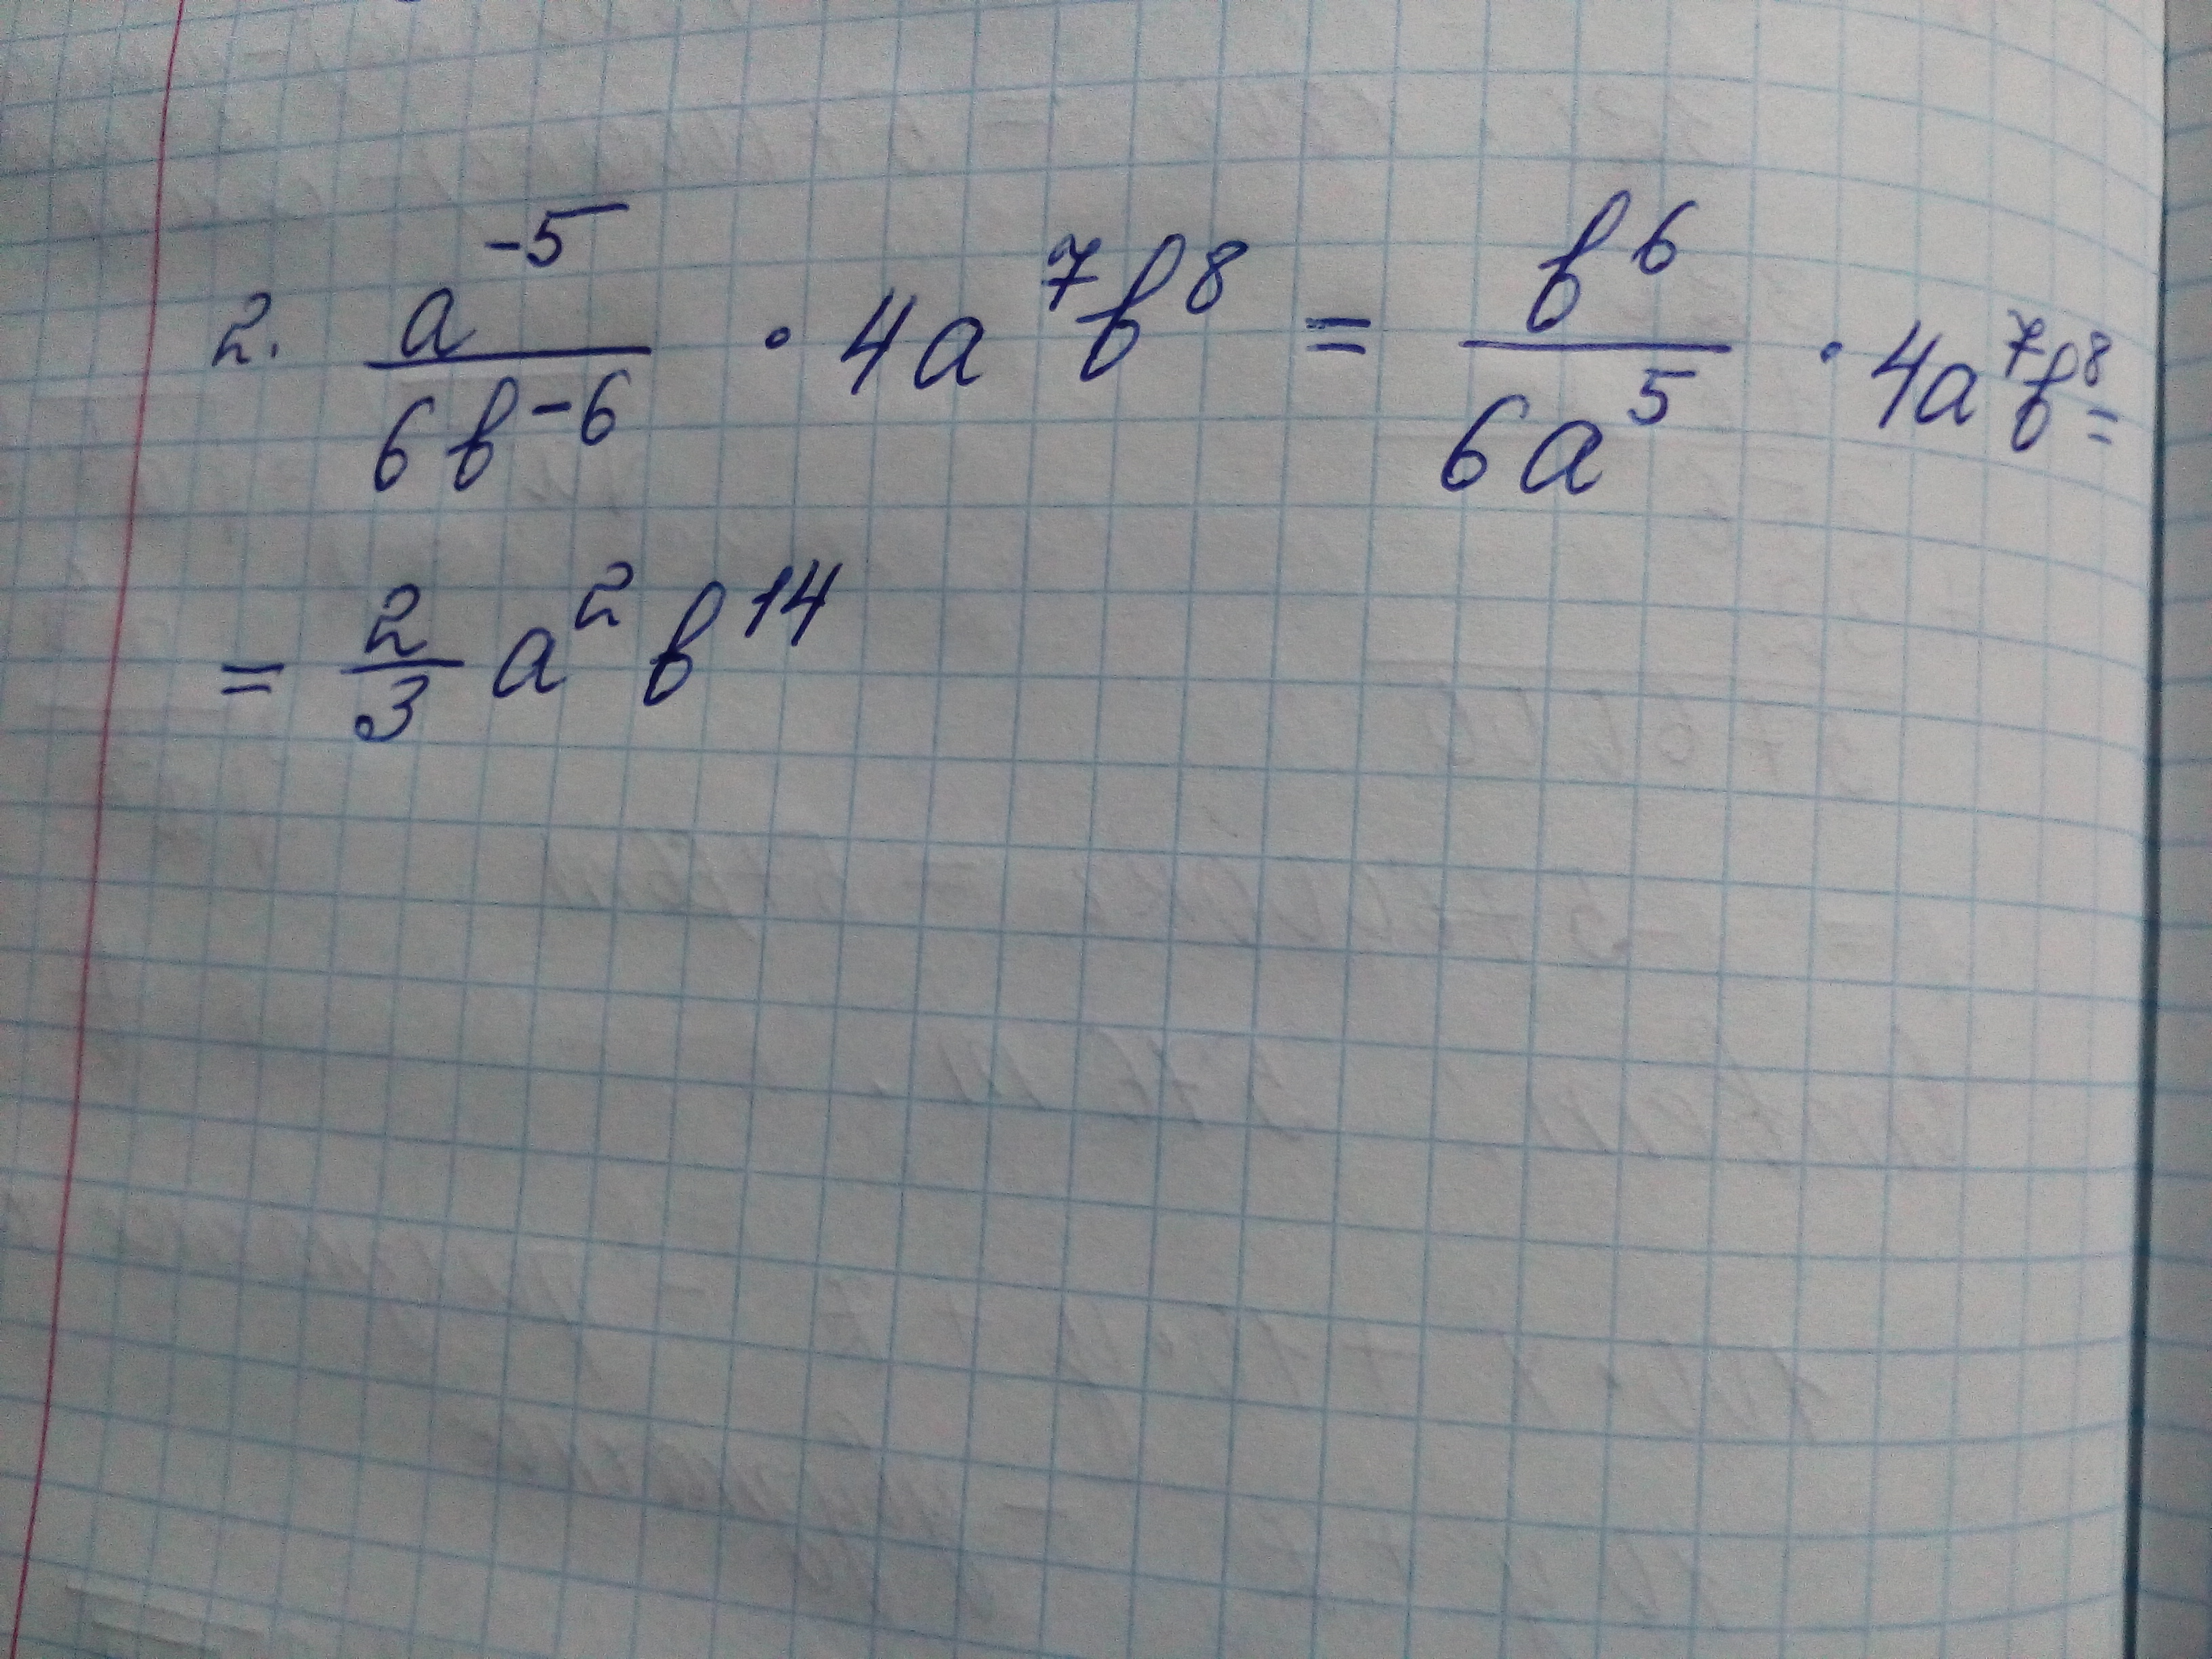 2. a⁻⁵/6b⁻⁶ · 4a⁷b⁸ = b⁶/6a⁵ · 4a⁷b⁸ =
= 2/3 a² b¹⁴